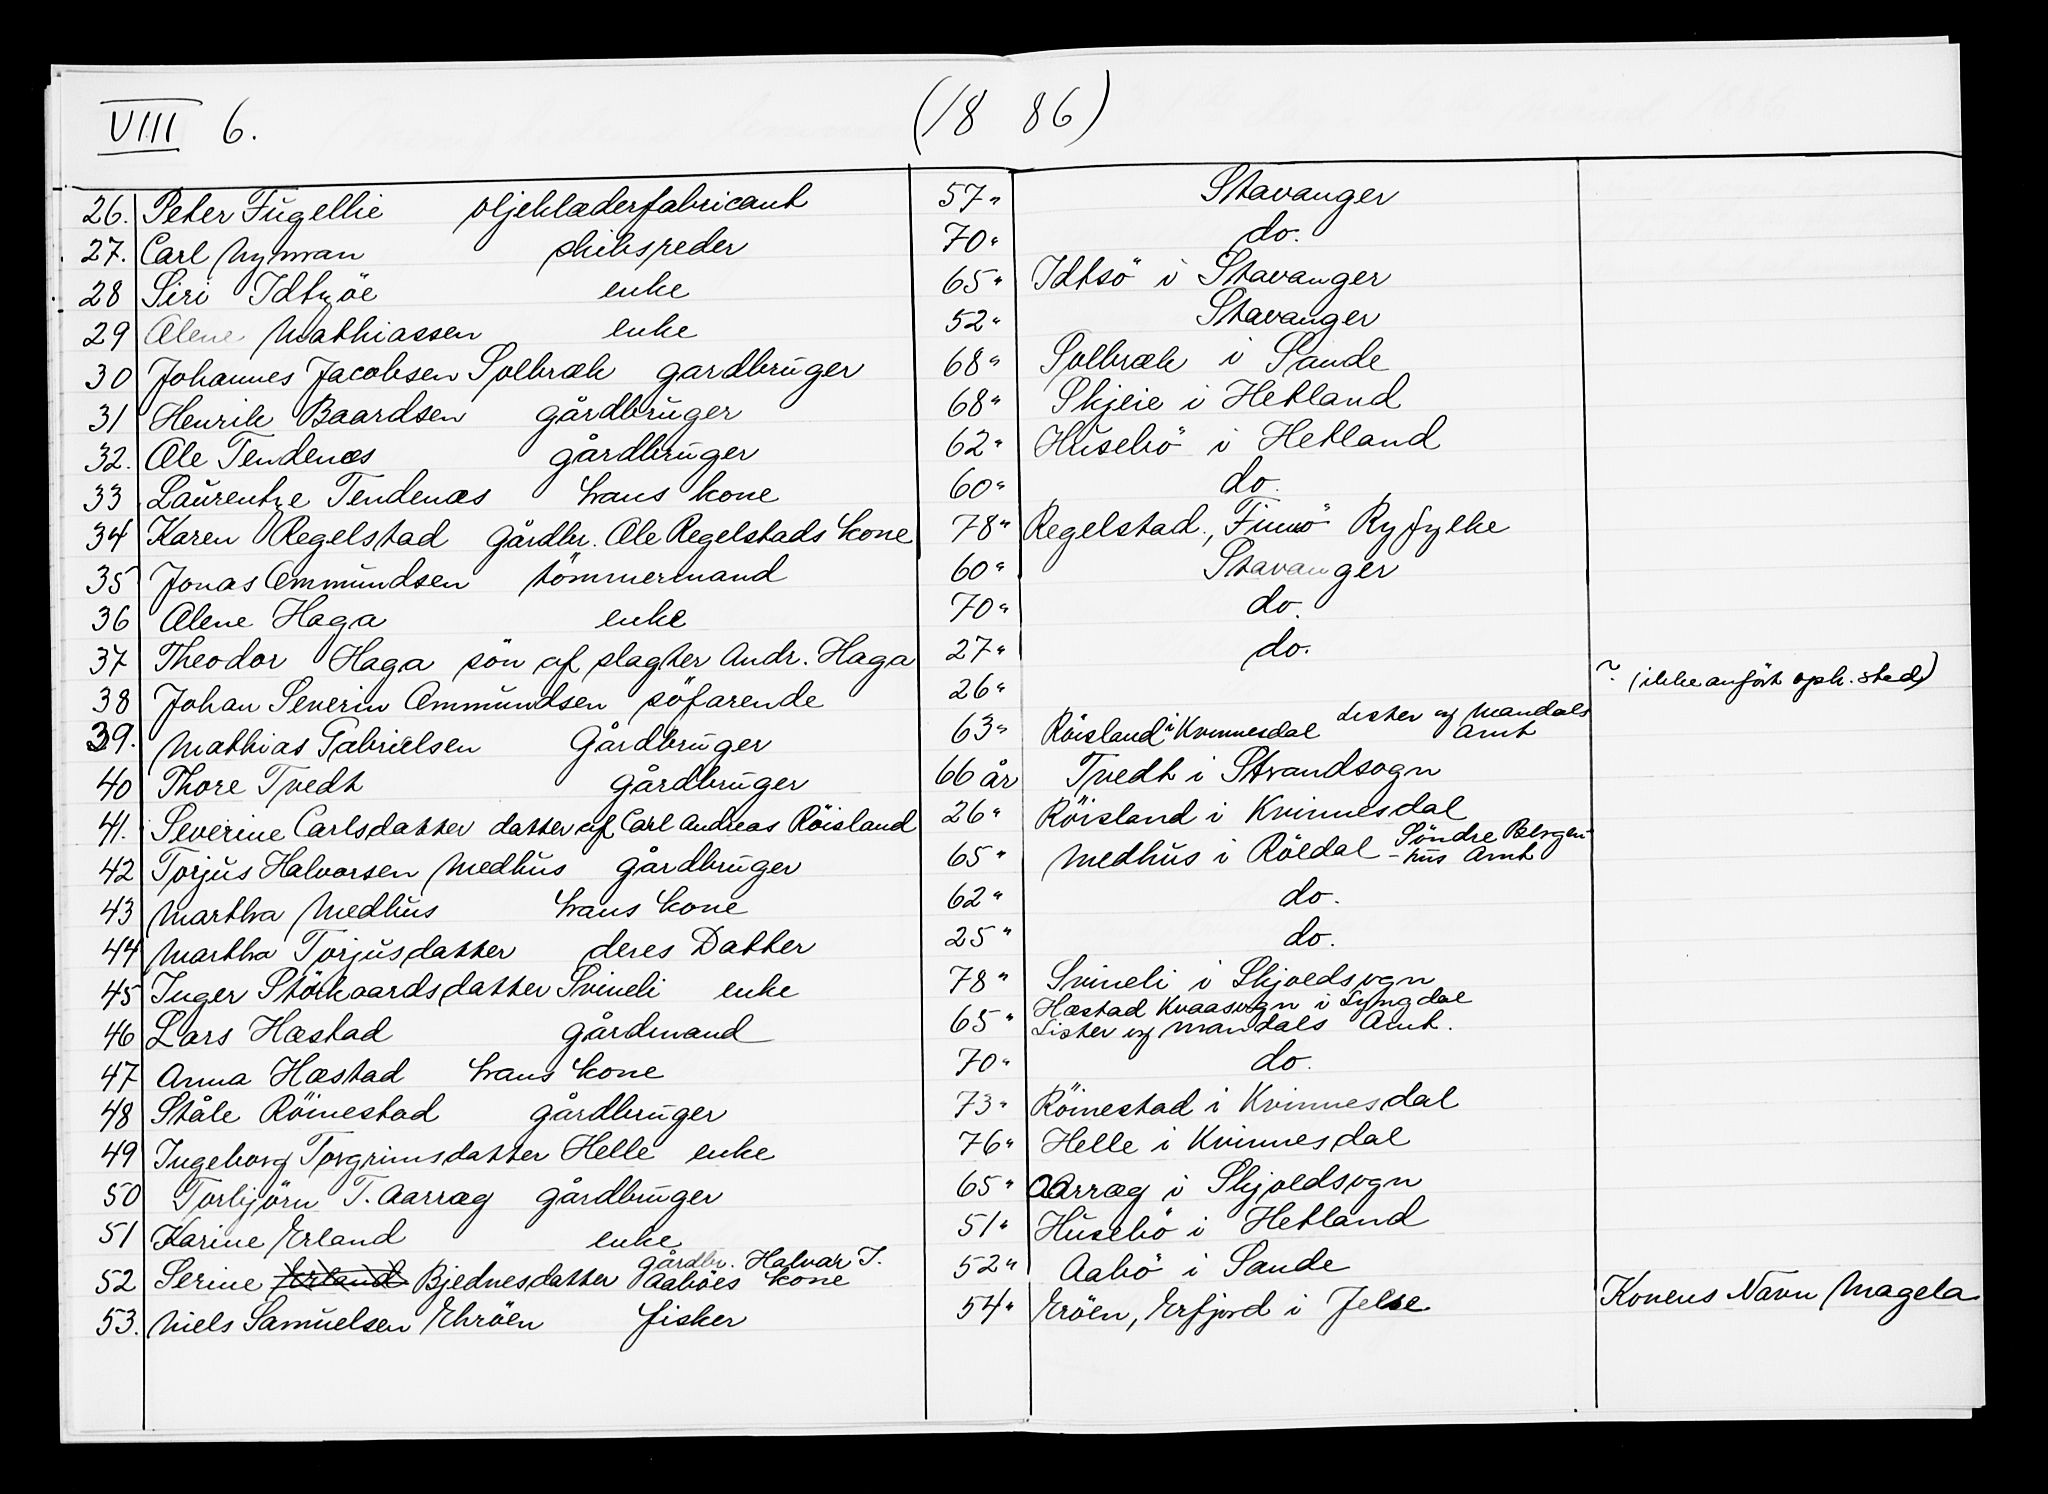 VIII 6. (18 86)
26. Peter Fugellie oljeklæderfabricant 57" Stavanger
27. Carl Nyman skibsreder 70" do.
28 Siri Idtsöe enke 65" Idtsö i Stavanger
29 Alene Mathiassen enke 52" Stavanger
30 Johannes Jacobsen Solbræk gardbruger 68" Solbræk i Sande
31 Henrik Baardsen gårdbruger 68" Skjeie i Hetland
32. Ole Tendenæs gårdbruger 62" Husebö i Hetland
33 Laurentze Tendenæs hans kone 60" do.
34 Karen Regelstad Gårdbr. Ole Regelstads kone 78" Regelstad., Finnö Ryfylke
35 Jonas Ommundsen tömmermand 60" Stavanger
36 Alene Haga enke 70" do.
37 Theodor Haga sön af slagter Andr. Haga 27" do.
38 Johan Severin Ommundsen söfarende 26" ? (ikke anfört oph. sted)
39. Mathias Gabrielsen Gårdbruger 63" Röisland i Kvinnesdal Lister og Mandals Amt
40 Thore Tvedt gårdbruger 66 år Tvedt i Strandsogn
41. Severine Carlsdatter datter af Carl Andreas Röisland 26" Röisland i Kvinnesdal
42 Torjus Halvorsen Medhus gårdbruger 65" Medhus i Röldal Söndre Bergen-
hus Amt
43 Martha Medhus hans kone 62" do.
44 Martha Torjusdatter deres Datter 25" do.
45 Inger Störkaardsdatter Svineli enke 78" Svineli i Skjoldsogn
46 Lars Hæstad gårdmand 65" Hæstad Kvaasogn i Lyngdal
Lister og Mandals Amt.
47 Anna Hæstad hans kone 70" do.
48 Ståle Röinestad gårdbruger 73" Röinestad i Kvinnesdal
49 Ingeborg Torgrimsdatter Helle enke 76" Helle i Kvinnesdal
50 Torbjörn T. Aarræg gårdbruger 65" Aarræg i Skjoldsogn
51 Karine Erland enke 51" Husebö i Hetland
52 Serine Erland Bjednesdatter gårdbr. Halvar T. Aaböes kone 52" Aabö i Sande
53. Niels Samuelsen Ehröen fisker 54" Eröen, Erfjord i Jelse Konens Navn Magela